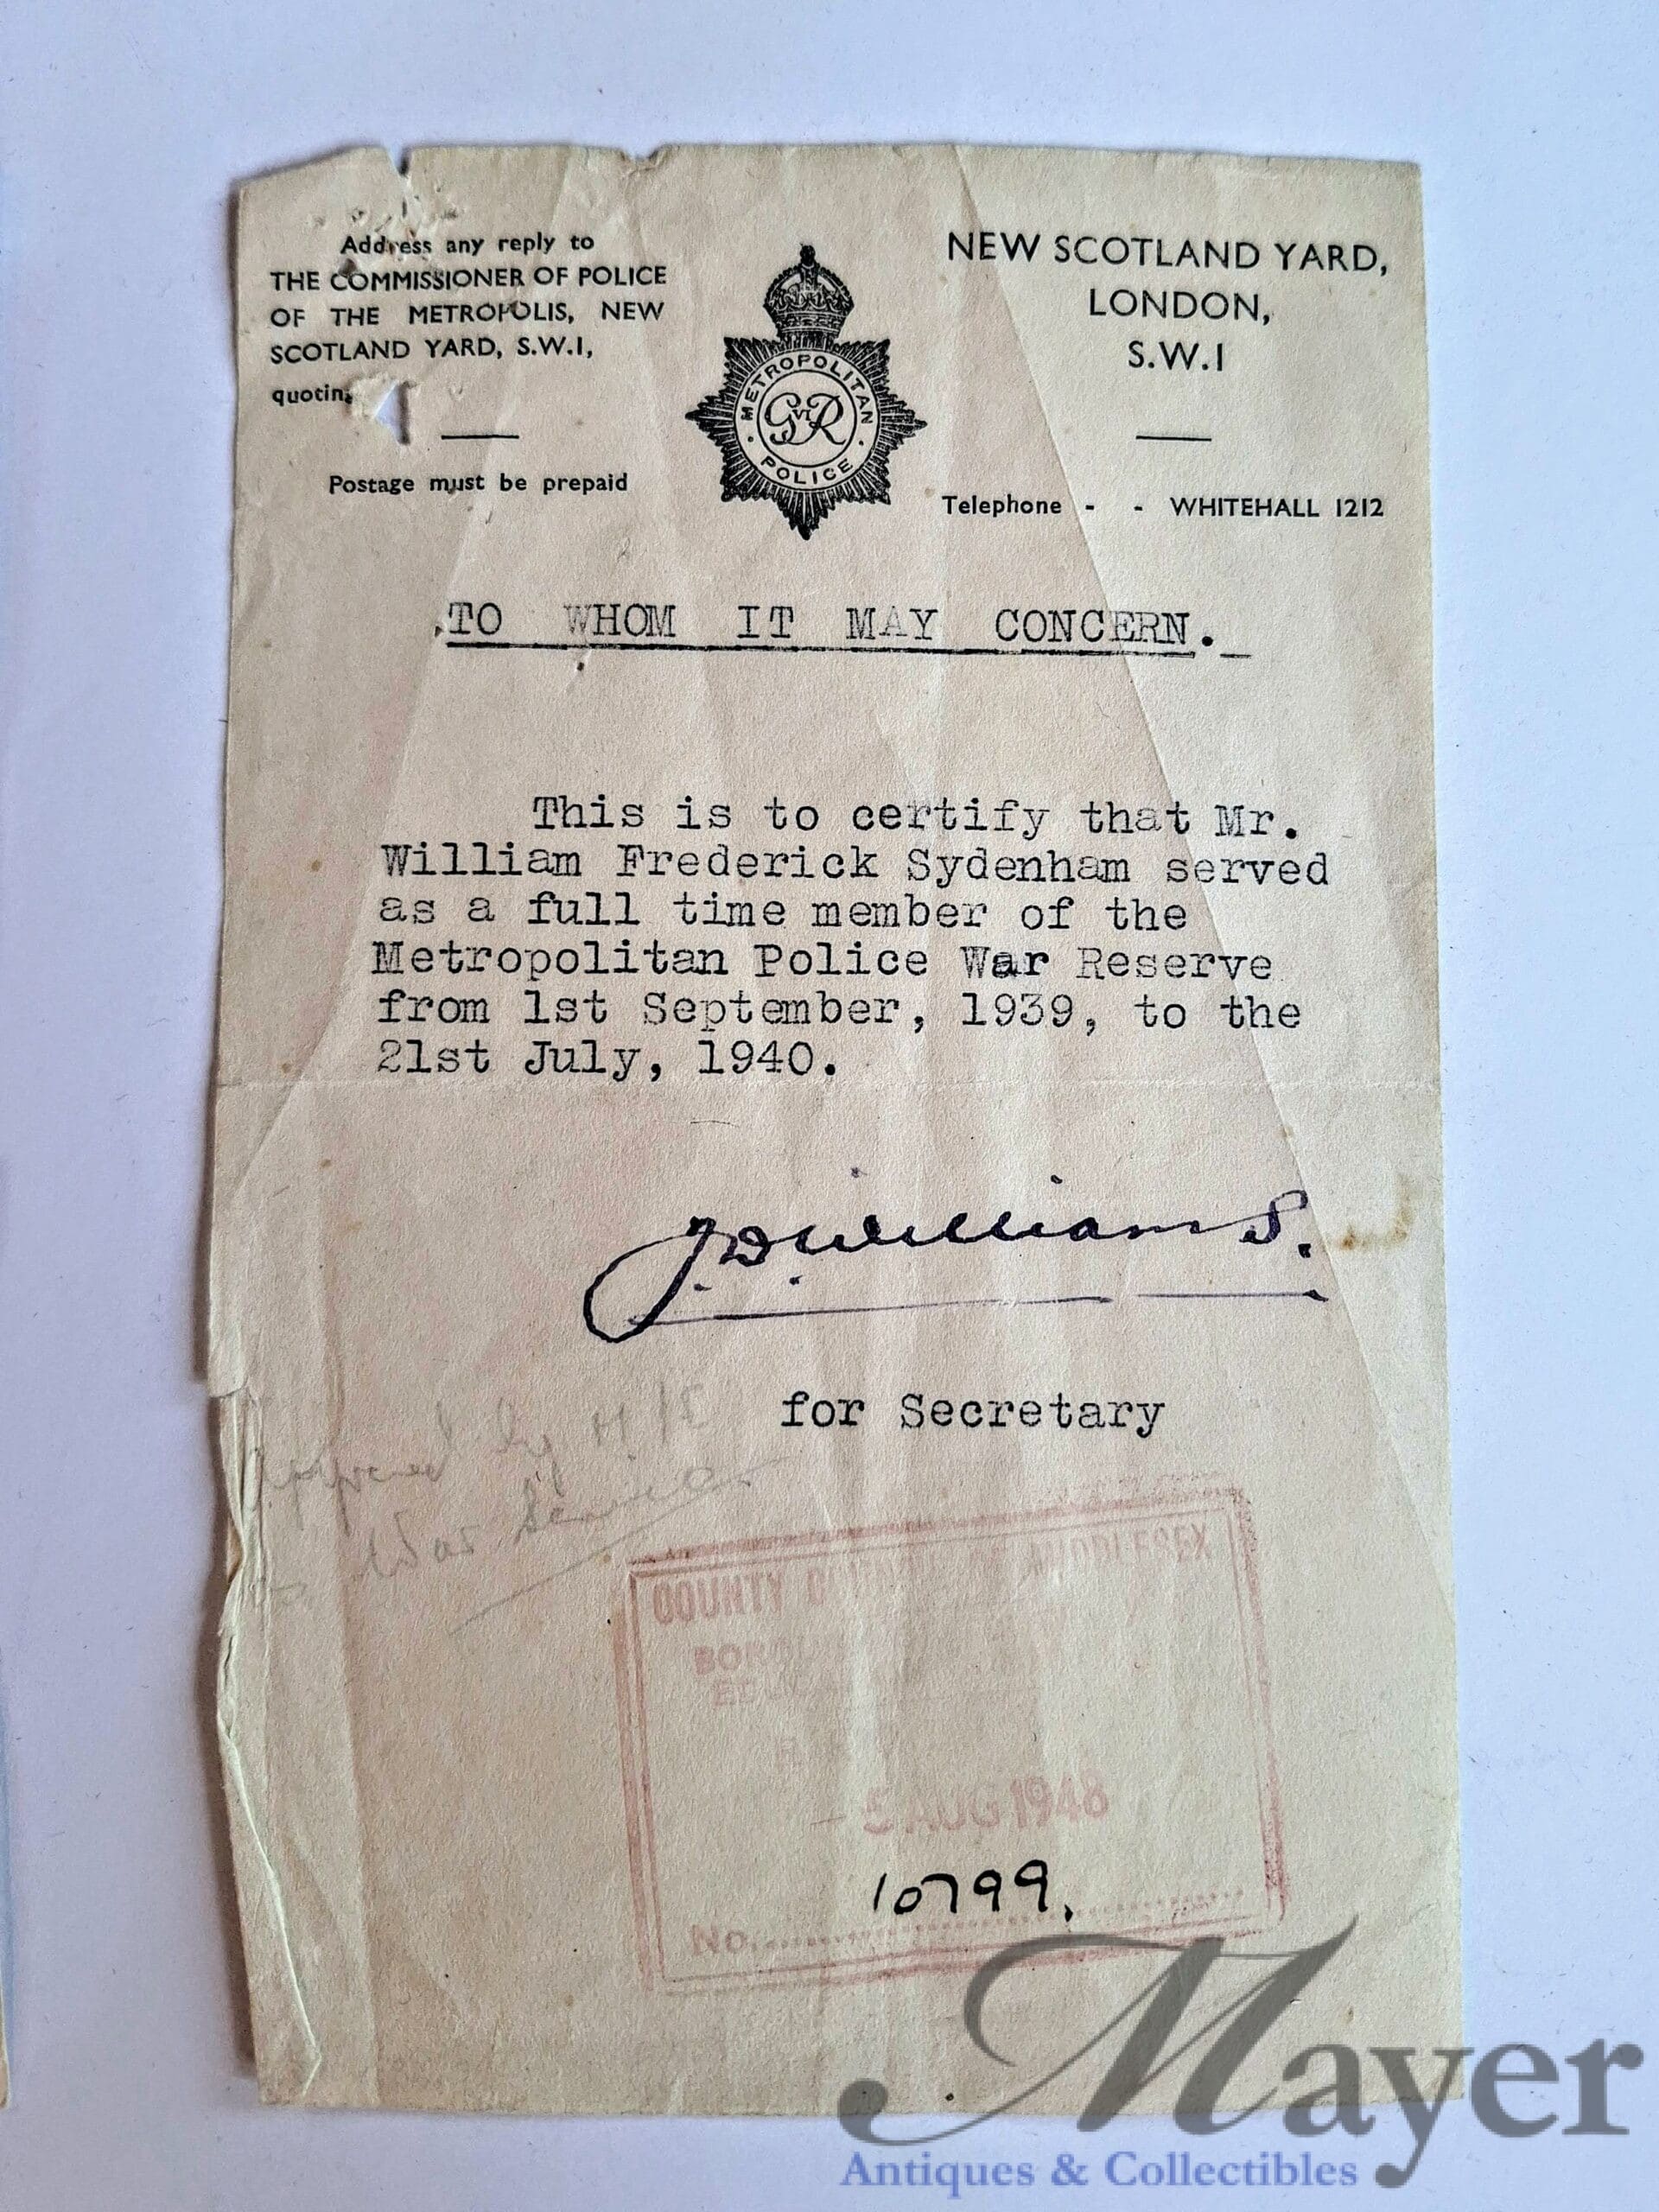 Address any reply to
THE COMMISSIONER OF POLICE
OF THE METROPOLIS, NEW
SCOTLAND YARD, S.W.1,
quoting
Postage must be prepaid
METROPOLITAN
GviR
POLICE
NEW SCOTLAND YARD,
LONDON,
S.W.1
Telephone - - WHITEHALL 1212
TO WHOM IT MAY CONCERN.
This is to certify that Mr.
William Frederick Sydenham served
as a full time member of the
Metropolitan Police War Reserve
from 1st September, 1939, to the
21st July, 1940.
J.D. Williams.
for Secretary
by H/E
War Service
COUNTY MIDDLESEX
- 5 AUG 1948
10799.
No.
Mayer
Antiques & Collectibles